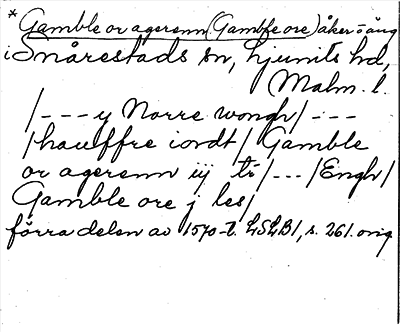 * Gamble or agerenn (Gamble ore) åker o äng
i Snårestads sn, Ljunits hd,
Malm. l.
/--- y Norre wongh/ ---
/hauffre iordt/ Gamble
or agerenn iij tr/ --- /Engh/
Gamble ore j les/
förra delen av 1570-t. LSLB1, s. 261. orig